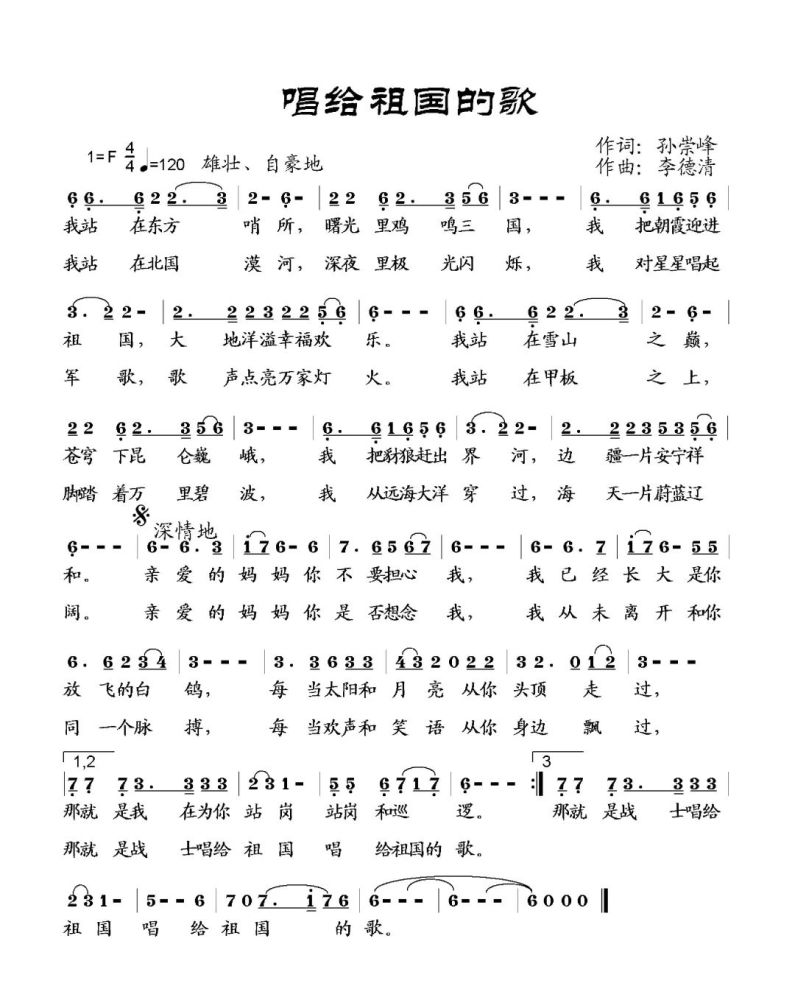 唱给祖国的歌
作词：孙崇峰
1=F 4/4 ♩=120 雄壮、自豪地
作曲：李德清
6 6. 6 2 2. 3 | 2- 6- | 2 2 6 2. 3 5 6 | 3--- | 6. 6 1 6 5 6
我站 在东方 哨所，曙光 里鸡 鸣三 国，我 把朝霞迎进
我站 在北国 漠河，深夜 里极 光闪 烁，我 对星星唱起
3. 2 2- | 2. 2 2 3 2 2 5 6 | 6--- | 6 6. 6 2 2. 3 | 2- 6- |
祖 国，大 地洋溢幸福欢 乐。 我站 在雪山 之 巅，
军 歌，歌 声点亮万家灯 火。 我站 在甲板 之 上，
2 2 6 2. 3 5 6 | 3--- | 6. 6 1 6 5 6 | 3. 2 2- | 2. 2 2 3 5 3 5 6 |
苍穹 下昆 仑巍 峨，我 把豺狼赶出 界 河，边 疆一片安宁祥
脚踏 着万 里碧 波，我 从远海大洋 穿 过，海 天一片蔚蓝辽
深情地
6--- | 6- 6. 3 | i 7 6- 6 | 7. 6 5 6 7 | 6--- | 6- 6. 7 | i 7 6- 5 5 |
和。 亲 爱 的 妈 妈 你 不 要担心 我， 我 已 经 长 大 是你
阔。 亲 爱 的 妈 妈 你 是 否想念 我， 我 从 未 离 开 和你
6. 6 2 3 4 | 3--- | 3. 3 6 3 3 | 4 3 2 0 2 2 | 3 2. 0 1 2 | 3--- |
放 飞的白 鸽， 每 当太阳和 月 亮 从你 头顶 走 过，
同 一个脉 搏， 每 当欢声和 笑 语 从你 身边 飘 过，
1,2 3
7 7 7 3. 3 3 3 | 2 3 1- | 5 5 6 7 1 7 | 6--- :| 7 7 7 3. 3 3 3 |
那就 是我 在为你 站 岗 站岗 和巡 逻。 那就 是战 士唱给
那就 是战 士唱给 祖 国 唱 给祖国的 歌。
2 3 1- | 5-- 6 | 7 0 7. i 7 6 | 6--- | 6--- | 6 0 0 0 ‖
祖 国 唱 给 祖 国 的 歌。